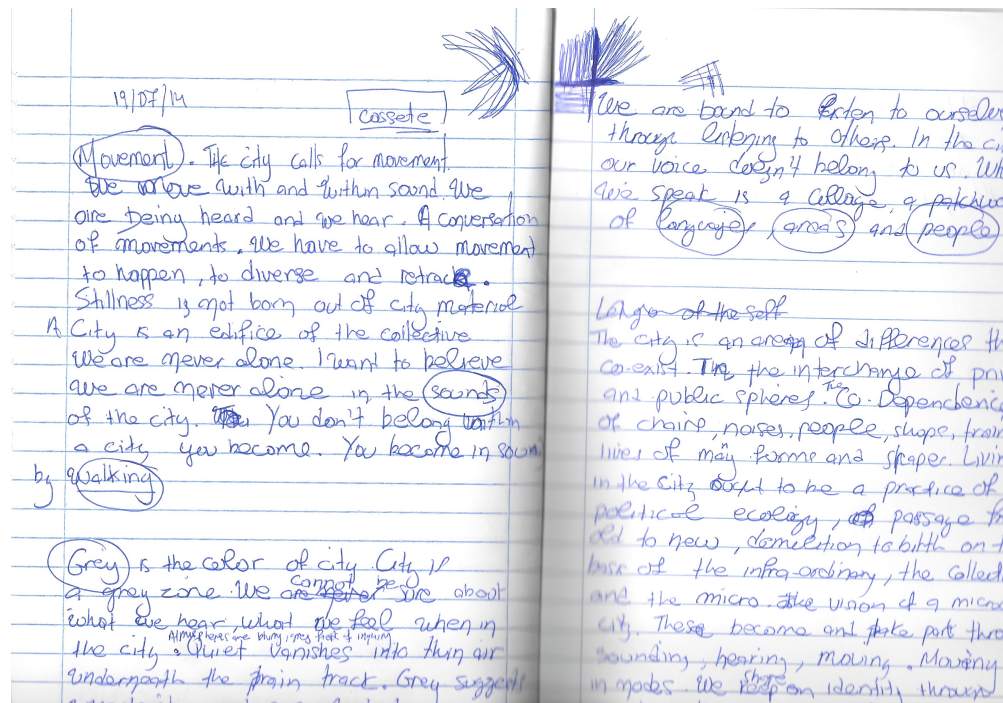 19/07/14
cassete
Movement. The city calls for movement.
We move with and within sound. We
are being heard and we hear. A conversation
of movements. We have to allow movement
to happen, to diverse and retrack.
Stillness is not born out of city material
A City is an edifice of the collective
We are never alone. I want to believe
we are never alone in the sounds
of the city. You don't belong within
a city you become. You become in sound
by walking
Grey is the color of city. City is
a grey zone. We cannot be sure about
what we hear, what we feel when in
Atmospheres are blurry, ines of
the city. Quiet vanishes into thin air
underneath the train track. Grey suggests
We are bound to listen to ourselve
through listening to others. In the ci
our voice doesn't belong to us. Wh
we speak is a collage, a patchwo
of languages, areas and people
of the self
The city is an area of differences th
co-exist. In the interchange of priv
and public spheres. The Co-Dependenci
of chairs, noises, people, shops, train
lives of many forms and shapes. Livin
in the city ought to be a practice of
political ecology, of passage fr
old to new, demolition to birth on t
base of the infra-ordinary, the collect
and the micro. The vision of a micro
city. These become and take part thro
sounding, hearing, moving. Moving
in modes. We share an identity through